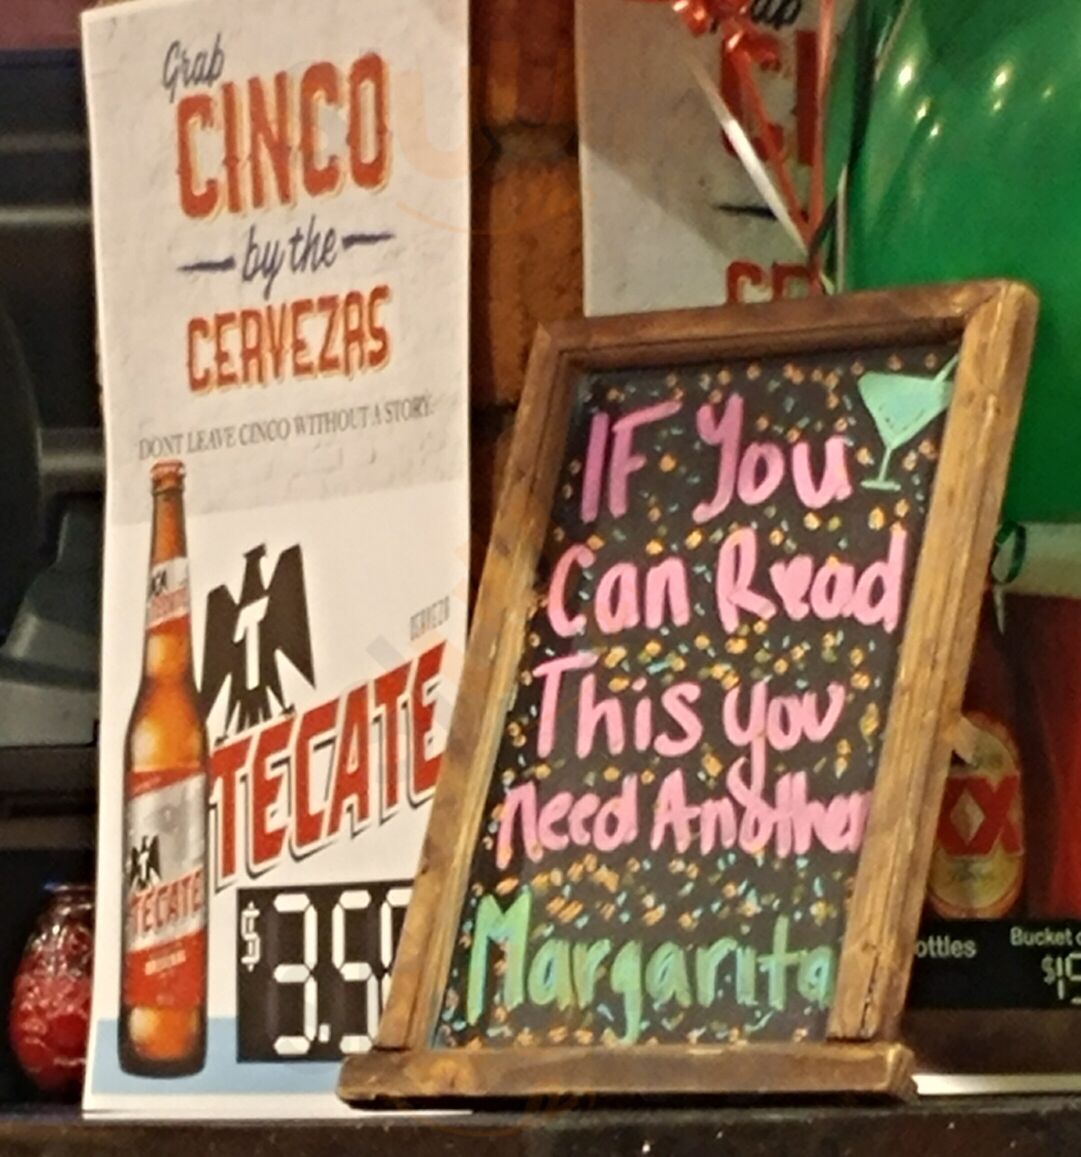 Grab
CINCO
by the
CERVEZAS
DONT LEAVE CINCO WITHOUT A STORY.
T
CERVEZA
TECATE
TECATE
$3.5
IF You
Can Read
This you
Need Another
Margarita
XX
ottles
Bucket
$1